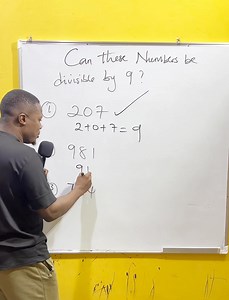 Can these Numbers be
divisible by 9?
① 207 ✓
2+0+7=9
981
91